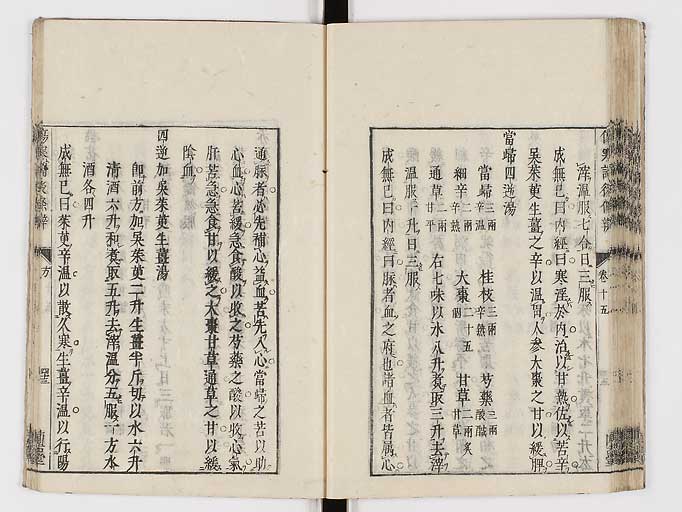 傷寒論條辨
卷十五
滓溫服七合日三服
成無已曰內經曰寒淫於內治以甘熱佐以苦辛
吳茱萸生薑之辛以溫胃人參大棗之甘以緩脾
當歸四逆湯
當歸三兩辛溫 桂枝三兩辛熱 芍藥三兩酸鹹
細辛二兩辛熱 大棗二十五 甘草二兩炙甘草
通草二兩甘平 右七味以水八升煮取三升去滓
溫服一升日三服
成無已曰內經曰脉者血之府也諸血者皆屬心
通脉者必先補心益血苦先入心當歸之苦以助
心血心苦緩急食酸以收之芍藥之酸以收心氣
肝苦急急食甘以緩之大棗甘草通草之甘以緩
陰血
四逆加吳茱萸生薑湯
卽前方加吳茱萸二升生薑半斤切以水六升
清酒六升和煮取五升去滓溫分五服一方水
酒各四升
成無已曰茱萸辛溫以散久寒生薑辛溫以行陽
方